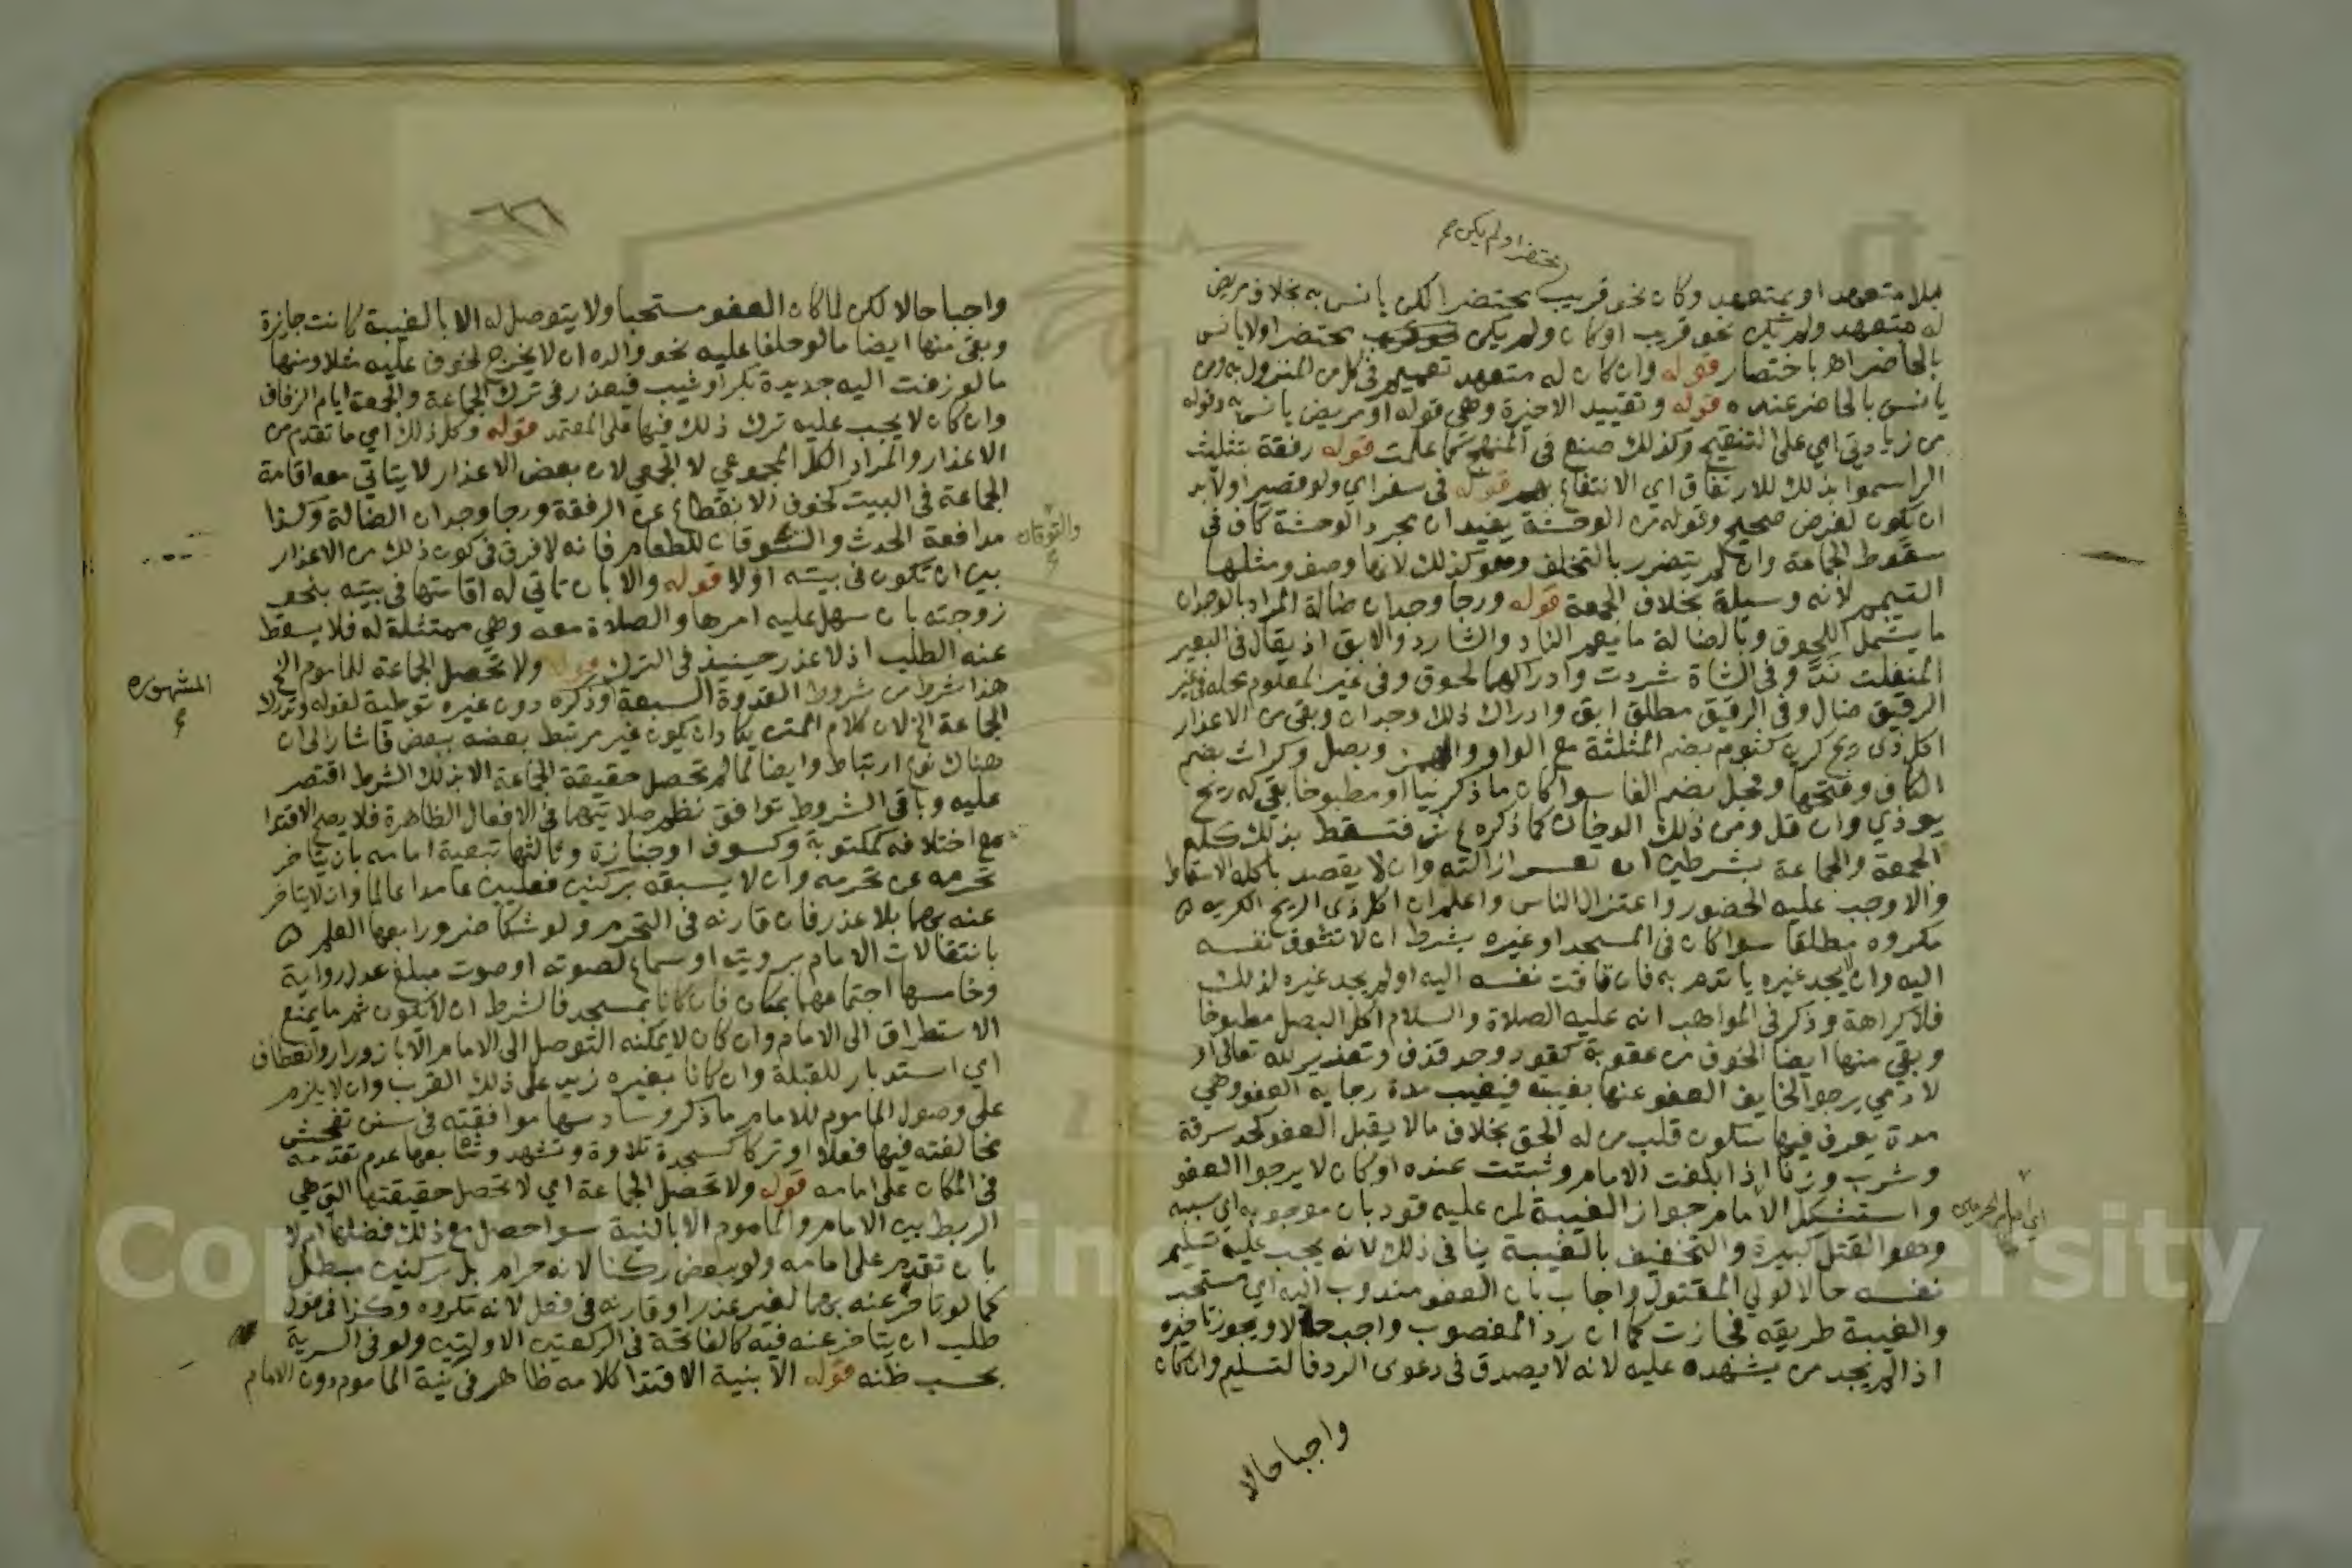 محتضرا ولم يكن
بلا متعهد او بمتعهد وكان نحو قريب محتضرا لكن يانس به بخلاف مريض
له متعهد ولم يكن نحو قريب او كان ولم يكن محتضرا ولا يانس
بالحاضر اه باختصار قوله وان كان له متعهد تعميم في كل من المنزول به ومن
يانس بالحاضر عنده قوله وتقييد الاخيرة وهي قوله او مريض يانس به وقوله
من زيادتي اي على التنقيح وكذلك صنع في المنهج كما علمت قوله رفقة بتثليث
الرا سموا بذلك للارتفاق اي الانتفاع بهم قوله في سفر اي ولو قصيرا ولا بد
ان يكون لغرض صحيح وقوله من الوحشة يفيد ان مجرد الوحشة كاف في
سقوط الجماعة وان لم يتضرر بالتخلف وهو كذلك لانها وصف ومثلها
التيمم لانه وسيلة بخلاف الجمعة قوله ورجا وجدان ضالة المراد بالوجدان
ما يشمل اللحوق وبالضالة ما يعم الناد والشارد والابق اذ يقال في البعير
المنفلت ند وفي الشاة شردت وادراكهما لحوق وفي غير المعلوم محله في غير
الرقيق ضال وفي الرقيق مطلق ابق وادراك ذلك وجدان وبقي من الاعذار
اكل ذي ريح كريه كثوم بضم المثلثة مع الواو والهمز وبصل وكراث بضم
الكاف وفتحها وفجل بضم الفا سوا كان ما ذكر نيا او مطبوخا بقي له ريح
يوذي وان قل ومن ذلك الدخان كما ذكره فتسقط بذلك كله
الجمعة والجماعة بشرطين ان تعسر ازالته وان لا يقصد باكله الاسقاط
والا وجب عليه الحضور واعتزال الناس واعلم ان اكل ذي الريح الكريه
مكروه مطلقا سوا كان في المسجد او غيره بشرط ان لا تتوق نفسه
اليه وان يجد غيره يا تدم به فان تاقت نفسه اليه او لم يجد غيره لذلك
فلا كراهة وذكر في المواهب انه عليه الصلاة والسلام اكل البصل مطبوخا
وبقي منها ايضا الخوف من عقوبة كقود وحد قذف وتعذير لله تعالى او
لادمي يرجو الخايف العفو عنها بغيبته فيغيب مدة رجايه العفو وهي
مدة يعرف فيها سكون قلب من له الحق بخلاف ما لا يقبل العفو كحد سرقة
وشرب وزنا اذا بلغت الامام وثبتت عنده او كان لا يرجوا العفو
واستشكل الامام جواز الغيبة لمن عليه قود بان موجوبه اي سببه
اي امام الحرمين
وهو القتل كبيرة والتخفيف بالغيبة ينافي ذلك لانه يجب عليه تسليم
نفسه حالا لولي المقتول واجاب بان العفو مندوب اليه اي مستحب
والغيبة طريقه فجازت كما ان رد المغصوب واجب حالا ويجوز تاخيره
اذا لم يجد من يشهده عليه لانه لا يصدق في دعوى الرد فالتسليم وان كان
واجبا حالا
واجبا حالا لكن لما كان العفو مستحبا ولا يتوصل له الا بالغيبة كانت جايزة
وبقي منها ايضا ما لو حلفا عليه نحو والده ان لا يخرج لخوف عليه مثلا ومنها
ما لو زفت اليه جديدة بكر او ثيب فيعذر في ترك الجماعة والجمعة ايام الزفاف
وان كان لا يجب عليه ترك ذلك فيها على المعتمد قوله وكل ذلك اي ما تقدم من
الاعذار والمراد الكل المجموعي لا الجمعي لان بعض الاعذار لا يتاتي معه اقامة
الجماعة في البيت كخوف الانقطاع عن الرفقة ورجا وجدان الضالة وكذا
مدافعة الحدث والشوقان للطعام فانه لا فرق في كون ذلك من الاعذار
والتوقان
بين ان تكون في بيته او لا قوله والا بان تاتي له اقامتها في بيته بنحو
زوجته بان سهل عليه امرها والصلاة معه وهي ممتثلة له فلا يسقط
عنه الطلب اذ لا عذر حينيذ في الترك قوله ولا تحصل الجماعة للماموم الخ
هذا شرط من شروط القدوة السبعة وذكره دون غيره توطية لقوله وتدرك
المشهورة
الجماعة الخ لان كلام المتن يكاد ان يكون غير مرتبط بعضه ببعض فاشار الى ان
هناك نوع ارتباط وايضا لما لم تحصل حقيقة الجماعة الا بذلك الشرط اقتصر
عليه وباقي الشروط توافق نظم صلاتيهما في الافعال الظاهرة فلا يصح الاقتدا
مع اختلافه كمكتوبة وكسوف او جنازة وثالثها تبعية امامه بان يتاخر
تحرمه عن تحرمه وان لا يسبقه بركنين فعليين عامدا عالما وان لا يتاخر
عنه بهما بلا عذر فان قارنه في التحرم ولو شكا ضر ورابعها العلم
بانتقالات الامام برويته او سماع لصوته او صوت مبلغ عدل رواية
وخامسها اجتماعهما بمكان فان كانا بمسجد فالشرط ان لا يكون ثم ما يمنع
الاستطراق الى الامام وان كان لا يمكنه التوصل الى الامام الا بازورار وانعطاف
اي استدبار للقبلة وان كانا بغيره زيد على ذلك القرب وان لا يلزم
على وصول الماموم للامام ما ذكر وسادسها موافقته في سنن تفحش
مخالفته فيها فعلا او تركا كسجدة تلاوة وتشهد وسابعها عدم تقدمه
في المكان على امامه قوله ولا تحصل الجماعة اي لا تحصل حقيقتها التي هي
الربط بين الامام والماموم الا بالنية سوا حصل مع ذلك فضلها ام لا
بان تقدم على امامه ولو ببعض ركنا لانه حرام بل بركنين مبطل
كما لو تاخر عنه بهما لغير عذر او قارنه في فعل لانه مكروه وكذا في قول
طلب ان يتاخر عنه فيه كالفاتحة في الركعتين الاوليتين ولو في السرية
بحسب ظنه قوله الا بنية الاقتدا كلامه ظاهر في نية الماموم دون الامام